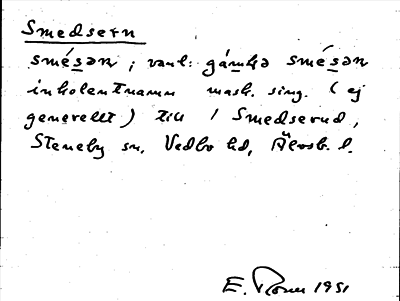 Smedsern
smésən ; vanl: gám̲ḷə smésən
inkolentnamn mask. sing. (ej
generellt) till / Smedserud,
Steneby sn, Vedbo hd, Älvsb. l.
E. 1951